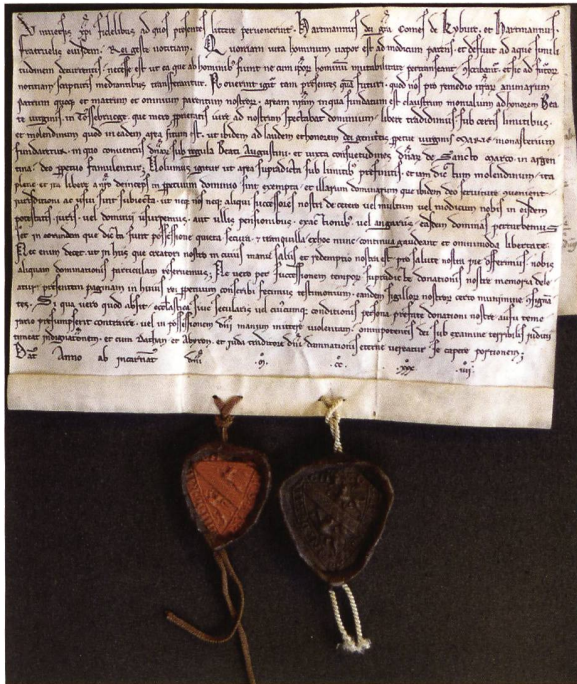 Universis xpi fidelibus ad quos presentes littere pervenerint. Hartmannus dei gra Comes de Kyburc. et Hartmannus
fratruelis eiusdem. Rei geste noticiam. Quoniam vita hominum vapor est ad modicum parens. et defluit ad aque simili
tudinem decurrentis. necesse est ut ea que ab hominibus fiunt ne cum ipor hominum mutabilitate permaneant et sic ad futuror
noticiam scripturis mediantibus transferatur. Noverint igitur tam presentes quam futuri. quod nos pro remedio nrarum animarum
patrum quoque et matrum et omnium parentum nostror. aream nram in qua fundatum est claustrum monialium ad honorem Bea
te virginis in Tossebrugge. que mero iure ad nostrum spectabat dominium. libere tradidimus sub certis limitibus.
et molendinum quod in eadem area situm est. ut ibidem ad laudem et honorem dei genitricis perpetue virginis Marie monasterium
fundaretur. in quo conventus sub regula Beati Augustini. et iuxta consuetudines de Sancto Marco in argen
tina. deo perpetuo famulentur. Nolumus igitur ut area supradicta sub limitibus prefinitis. et cum dictum molendinum. ita
plene et ita libere a nro deinceps in perpetuum dominio sint exempta. et illarum dominarum que ibidem deo servierint
iurisdictioni ac usui sint subiecta. ut neque nos neque aliqui successores nostri de cetero vel multum vel modicum nobis in eisdem
potestatis iuris vel dominii usurpemus. aut ullis pensionibus. exactionibus vel angariis. easdem dominas perturbemus
set in eorundem que dicta sunt possessione quieta secura. et tranquilla ex hoc nunc continua gaudeant et omnimoda libertate.
Nec enim decet. ut in hiis que creatori nostro in cuius manu salus et redemptio nostra est pro salute nostra pie offerimus. nobis
aliquam dominationis particulam reservemus. Ne vero per successionem temporum supradicte donationis nostre memoria dele
atur. presentem paginam in huius rei perpetuum conscribi fecimus testimonium. eandem sigillorum nostror certo munimine
tes. Si qua vero quod absit. ecclastica sive secularis vel cuiuscumque conditionis persona presenti donationi nostre ausu teme
rario presumpserit contraire. vel in possessionem manum mittere violentam. omnipotentis dei sub examine terribilis iudicii
timeat indignationem. et cum Dathan et Abyron. et iuda traditore dni damnationis eterne vereatur se capere portionem.
Dat Anno ab incarnat dni .m. .cc. .xxx. .iiii.